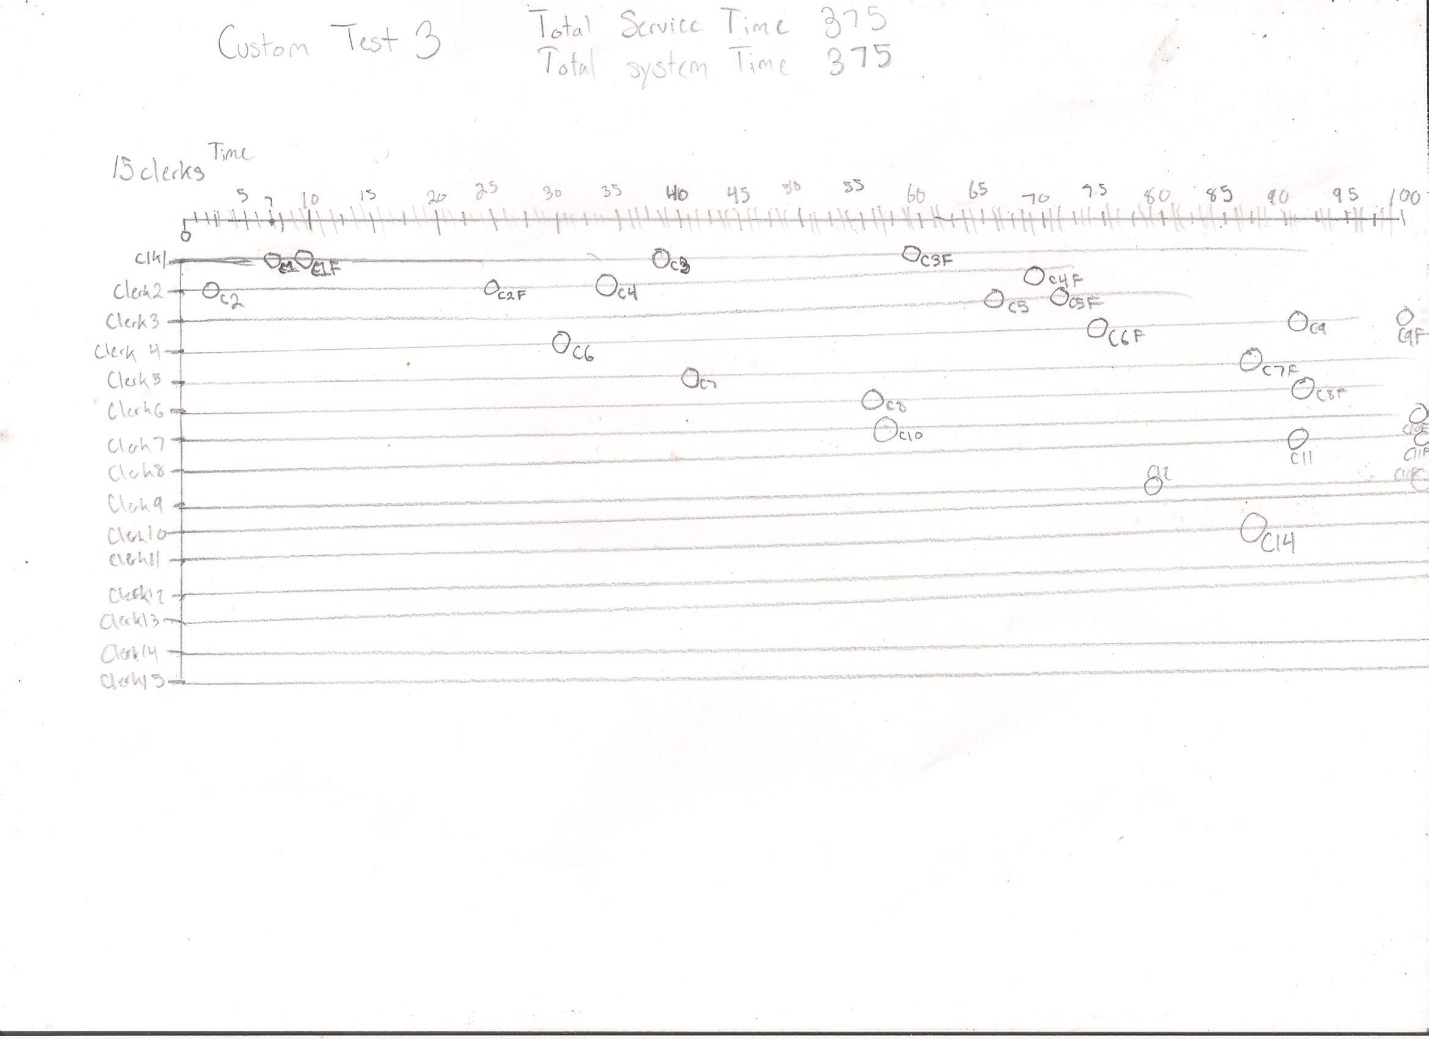 Custom Test 3
Total Service Time 375
Total system Time 375
15 clerks
Time
5 7 10 15 20 25 30 35 40 45 50 55 60 65 70 75 80 85 90 95 100
0
clk1 C1 C1F C3 C3F
Clerk2 C2 C2F C4 C4F
C5 C5F
Clerk3 C6F C9 C9F
Clerk 4 C6
Clerk5 C7 C7F
Clerk6 C8 C8F
Clerk7 C10 C11 C11F
Clerk8 C12
Clerk9
Clerk10 C14
Clerk11
Clerk12
Clerk13
Clerk14
Clerk15